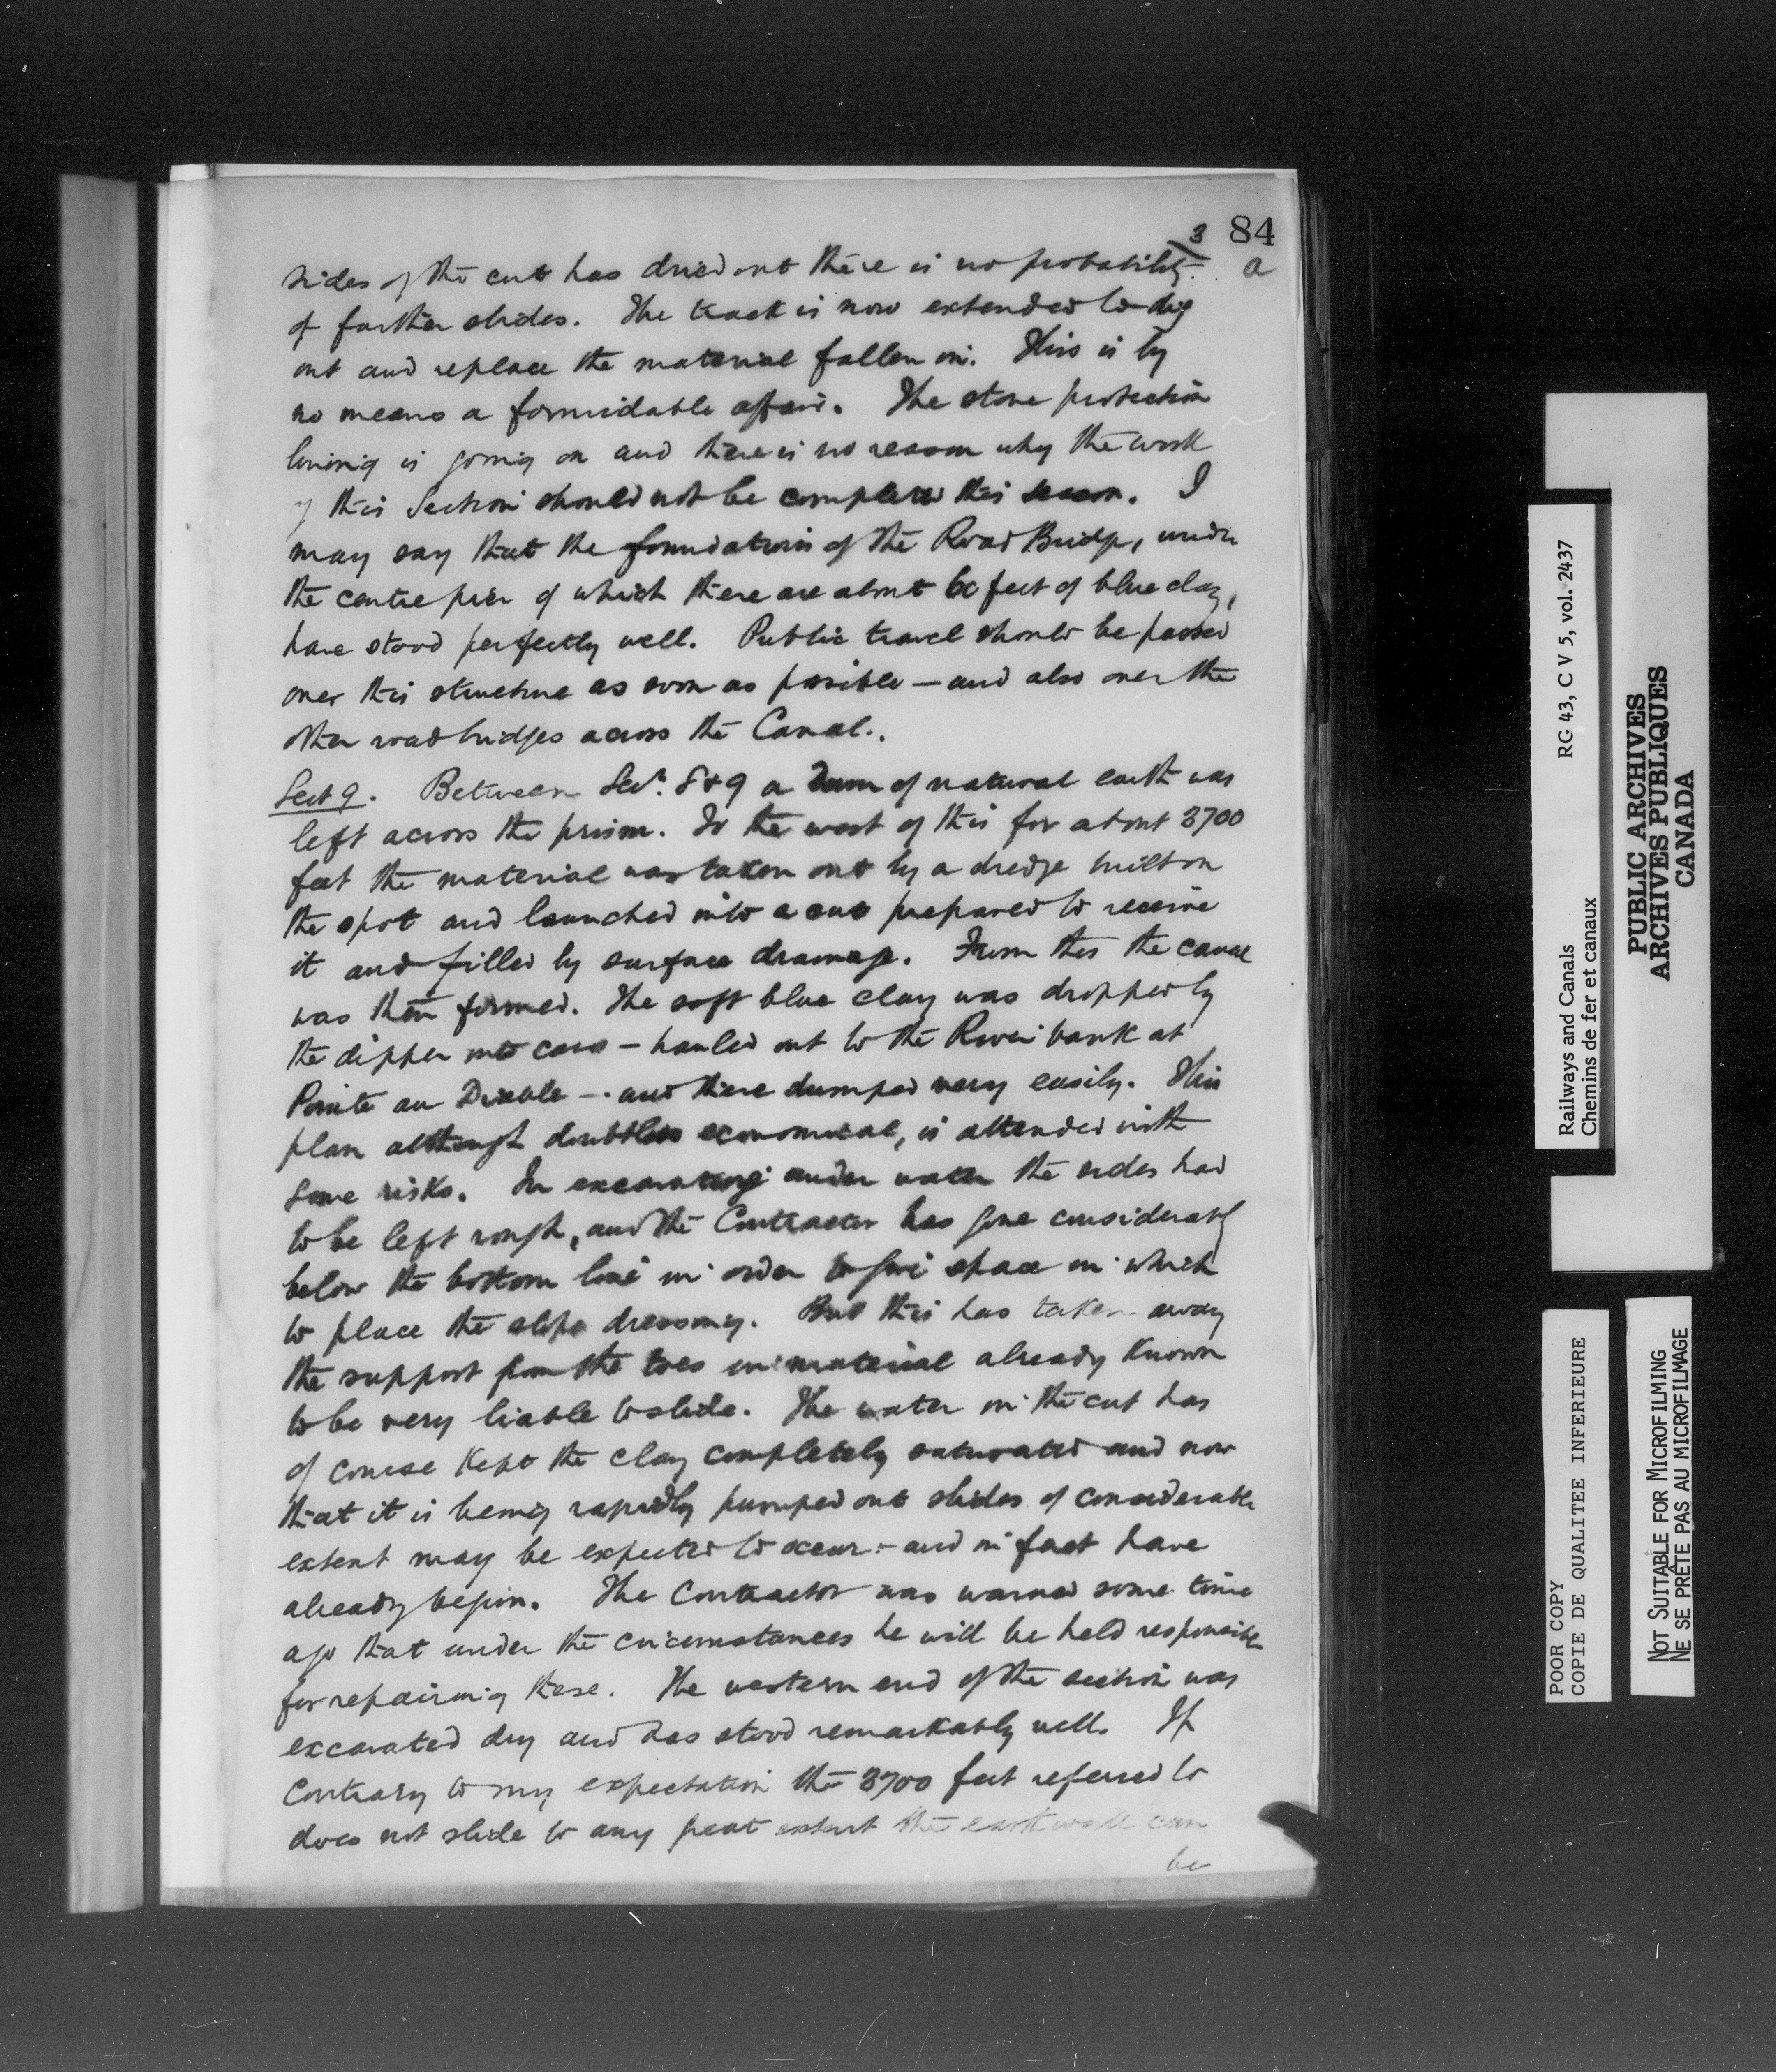 84
3
a
sides of the cut has dried out there is no probability
of further slides. The track is now extended to dig
out and replace the material fallen in. This is by
no means a formidable affair. The stone protection
lining is going on and there is no reason why the work
of this Section should not be completed this season. I
may say that the foundations of the Road Bridge, under
the centre pier of which there are about 60 feet of blue clay,
have stood perfectly well. Public travel should be passed
over this structure as soon as possible — and also over the
other road bridges across the Canal.
Sect 9. Between Secs. 8 & 9 a dam of natural earth was
left across the prism. To the west of this for about 3700
feet the material was taken out by a dredge built on
the spot and launched into a cut prepared to receive
it and filled by surface drainage. From this the canal
was then formed. The soft blue clay was dropped by
the dipper into cars — hauled out to the River bank at
Pointe au Diable — and there dumped very easily. This
plan although doubtless economical, is attended with
some risks. In excavating under water the sides had
to be left rough, and the Contractor has gone considerably
below the bottom line in order to give space in which
to place the slope dressing. But this has taken away
the support from the toes in material already known
to be very liable to slide. The water in the cut has
of course kept the clay completely saturated and now
that it is being rapidly pumped out slides of considerable
extent may be expected to occur — and in fact have
already begun. The Contractor was warned some time
ago that under the circumstances he will be held responsible
for repairing these. The western end of the section was
excavated dry and has stood remarkably well. If
contrary to my expectation the 3700 feet referred to
does not slide to any great extent the earthwork can
be
Railways and Canals RG 43, C V 5, vol. 2437
Chemins de fer et canaux
PUBLIC ARCHIVES
ARCHIVES PUBLIQUES
CANADA
POOR COPY
COPIE DE QUALITEE INFERIEURE
NOT SUITABLE FOR MICROFILMING
NE SE PRÊTE PAS AU MICROFILMAGE